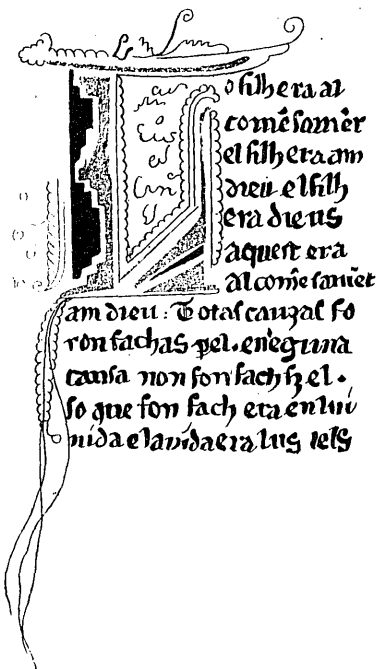 Lo filh era al
comēsamēt
el filh era am
dieu el filh
era dieus
aquest era
al comēsamēt
am dieu : Totas cauzas fo
ron fachas ꝑel . e neguna
causa non fon fach sz el .
so que fon fach era en lui
uida e la uida era lus dels